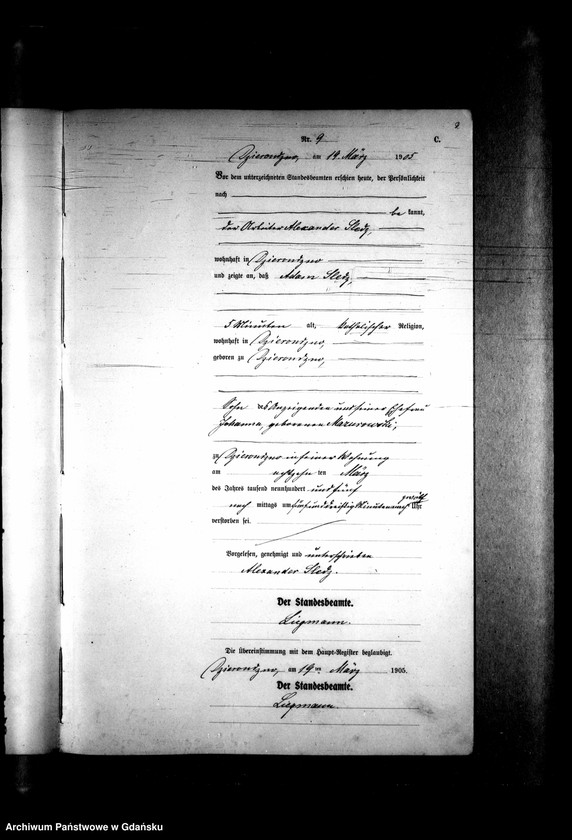 8
Nr. 9 C.
Dzierondzno, am 19 März 1905
Vor dem unterzeichneten Standesbeamten erschien heute, der Persönlichkeit
nach
be kannt,
der Arbeiter Alexander Sledz,
wohnhaft in Dzierondzno
und zeigte an, daß Adam Sledz,
5 Minuten alt, katholischer Religion,
wohnhaft in Dzierondzno,
geboren zu Dzierondzno,
Sohn des Anzeigenden und seiner Ehefrau
Johanna, geborenen Mazurowski,
zu Dzierondzno in seiner Wohnung
am achtzehn ten März
des Jahres tausend neunhundert und fünf
nach mittags um fünfunddreißig Minuten nach zwölf Uhr
verstorben sei.
Vorgelesen, genehmigt und unterschrieben
Alexander Sledz.
Der Standesbeamte.
Liepmann.
Die Übereinstimmung mit dem Haupt-Register beglaubigt.
Dzierondzno, am 19ten März 1905.
Der Standesbeamte.
Liepmann.
Archiwum Państwowe w Gdańsku